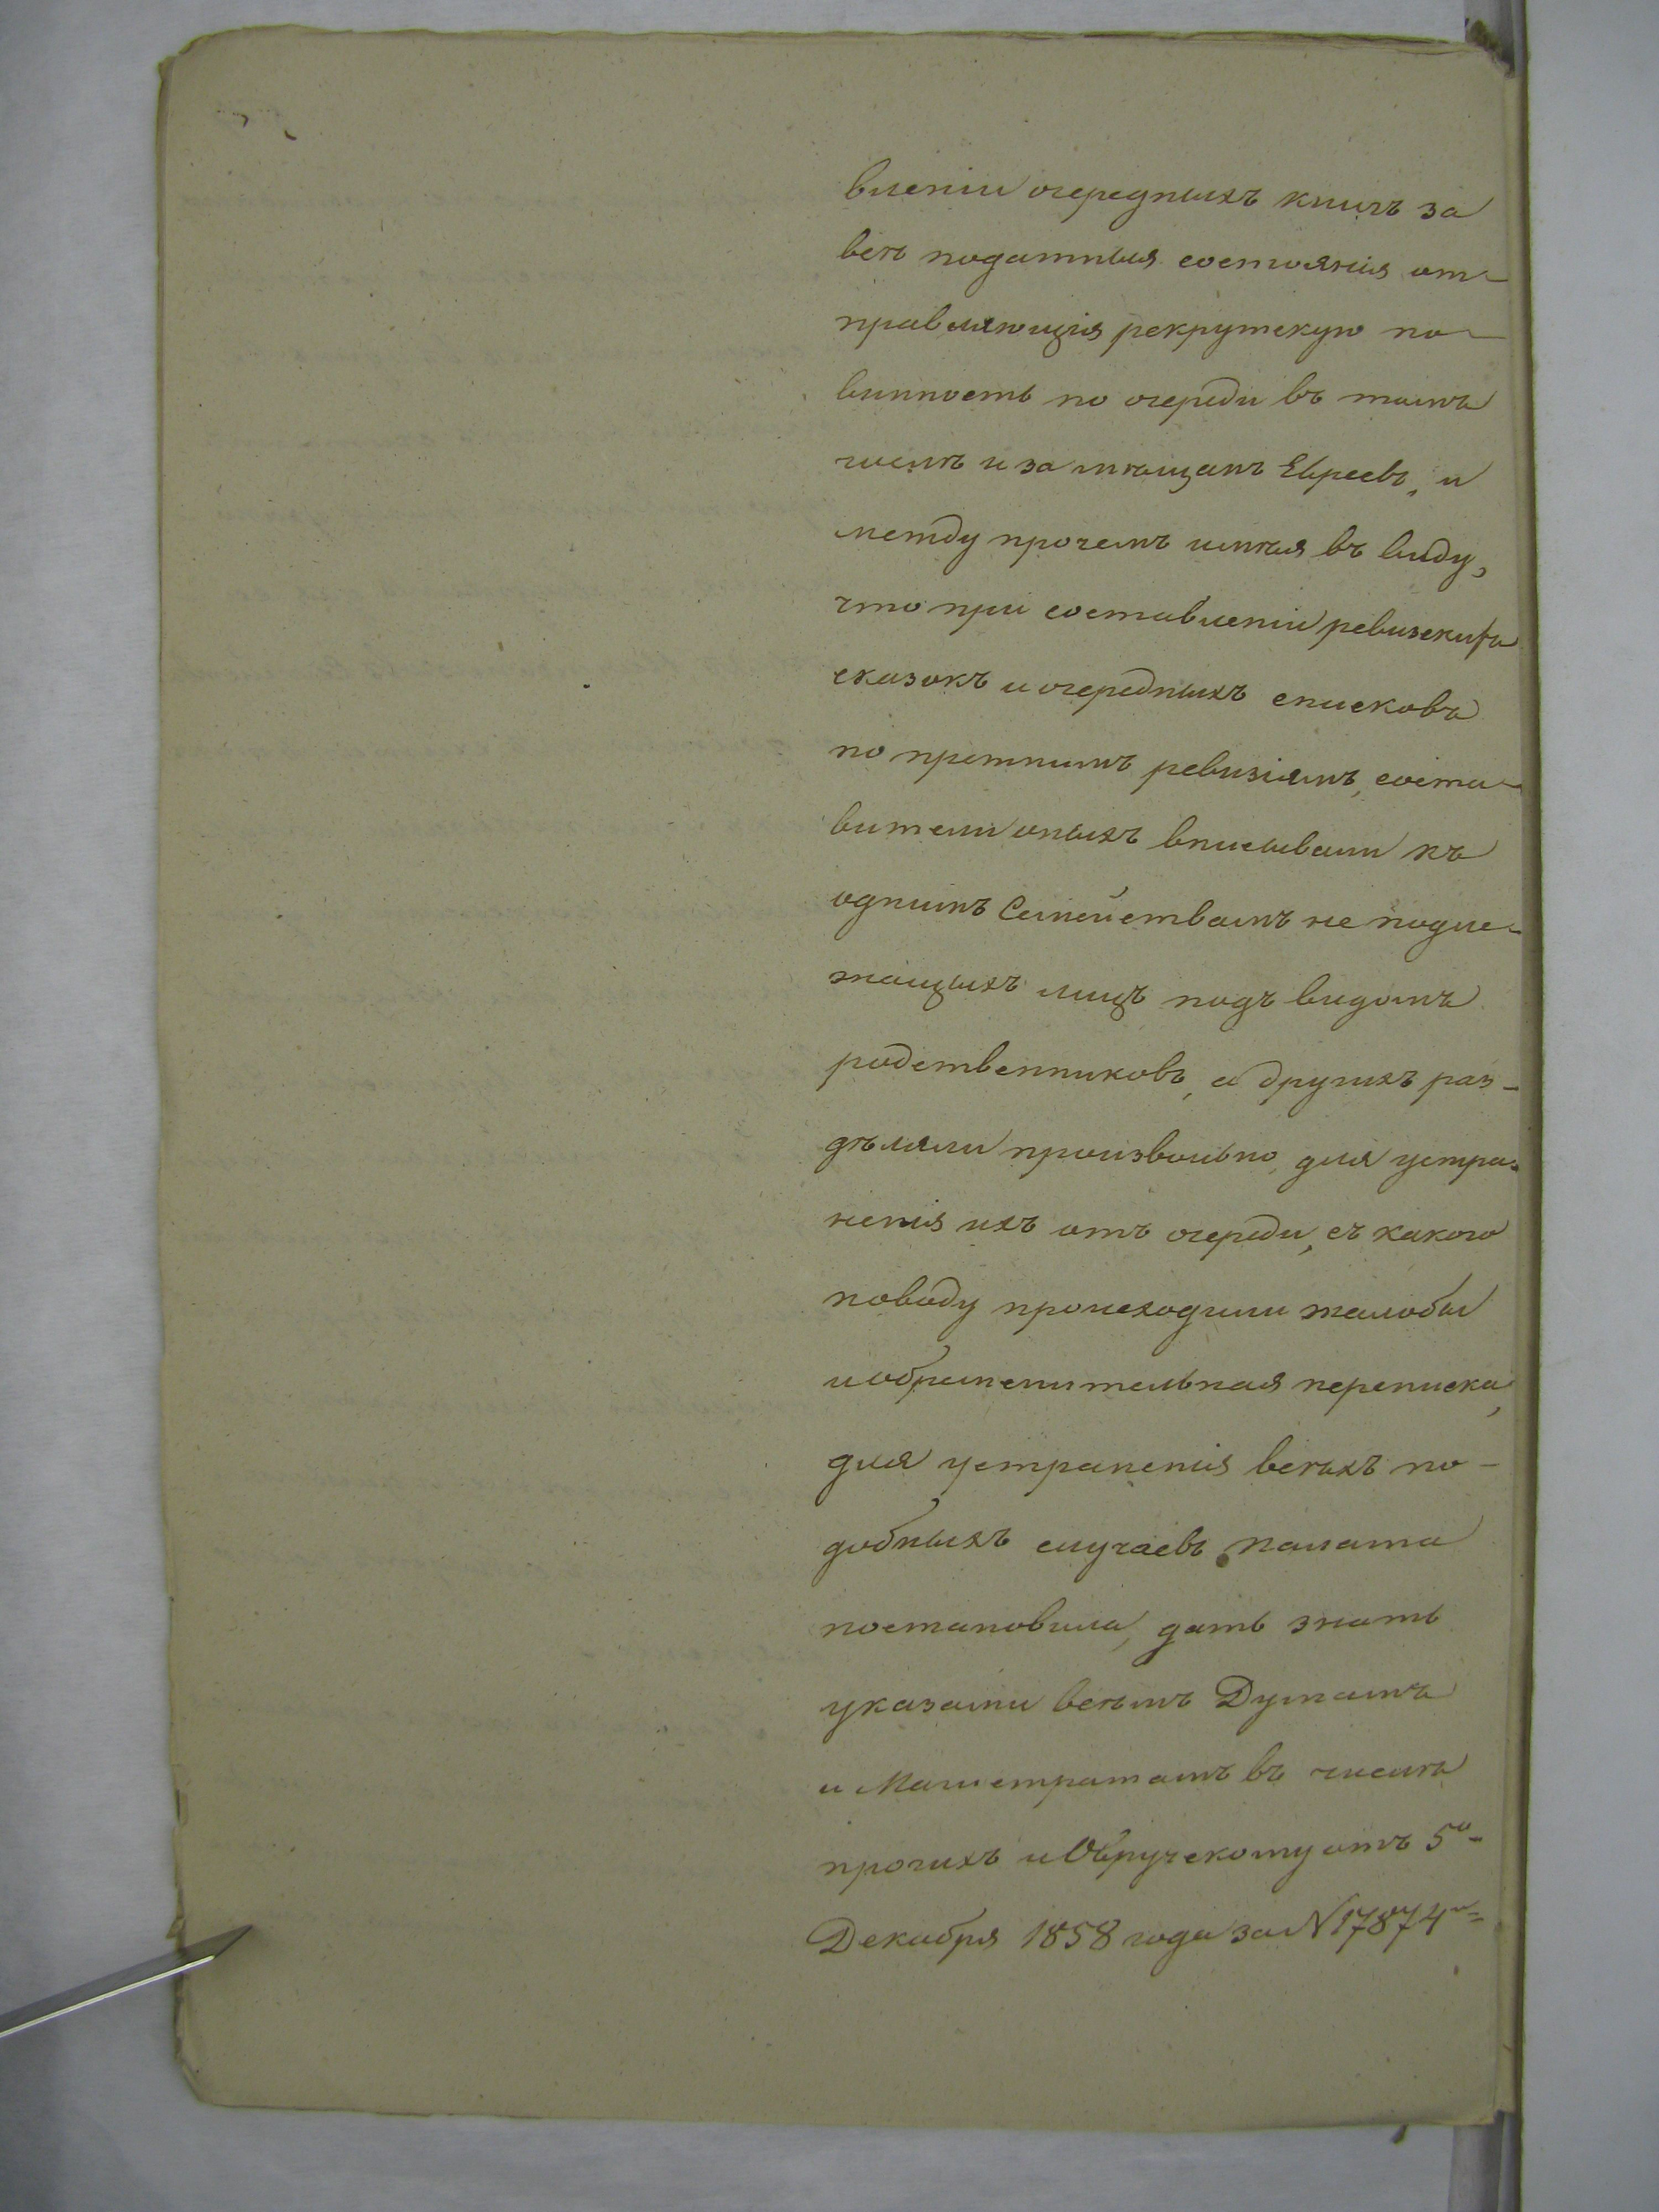 вленіи очередныхъ книгъ за
всѣ податныя состоянія от-
правляющія рекрутскую по-
винность по очереди въ томъ
числѣ и за мѣщанъ Евреевъ, и
между прочемъ имѣя въ виду,
что при составленіи ревизскихъ
сказокъ и очередныхъ списковъ
по прежнимъ ревизіямъ, соста-
вители оныхъ вписывали къ
однимъ Семействамъ не подле-
жащыхъ лицъ подъ видомъ
родственниковъ, а другихъ раз-
дѣляли произвольно, для устра-
ненія ихъ отъ очереди, съ какого
поводу происходили жалобы
и обременительная переписка,
для устраненія всѣхъ по-
добныхъ случаевъ, палата
постановила, дать знать
указами всѣмъ Думамъ
и Магистратамъ въ числѣ
прочихъ и Овручскому отъ 5го
Декабря 1858 года за N 17874м=